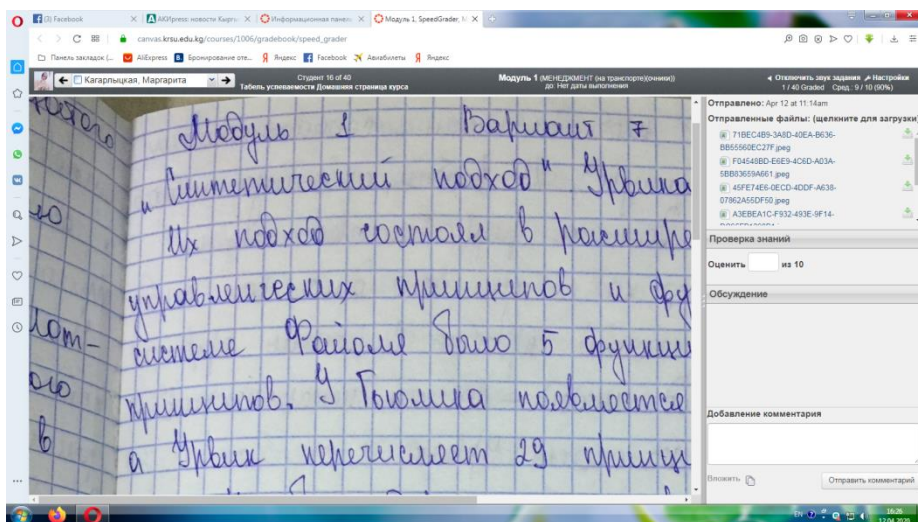 (3) Facebook
АКИpress: новости Кыргы
Информационная панель
Модуль 1, SpeedGrader, М
canvas.krsu.edu.kg/courses/1006/gradebook/speed_grader
Панель закладок (...
AliExpress
Бронирование оте...
Яндекс
Facebook
Авиабилеты
Яндекс
Кагарлыцкая, Маргарита
Студент 16 of 40
Табель успеваемости Домашняя страница курса
Модуль 1 (МЕНЕДЖМЕНТ (на транспорте)(очники))
до: Нет даты выполнения
Отключить звук задания
Настройки
1 / 40 Graded Сред.: 9 / 10 (90%)
Модуль 1 Вариант 7
"Синтетический подход" Урвика
Их подход состоял в расшире
управленческих принципов и фу
системе Файоля было 5 функци
принципов. У Гьюлика появляется
а Урвик перечисляет 29 принци
лот-
ого
в
Отправлено: Apr 12 at 11:14am
Отправленные файлы: (щелкните для загрузки)
71BEC4B9-3A8D-40EA-B636-
BB55560EC27F.jpeg
F04548BD-E6E9-4C6D-A03A-
5BB83659A661.jpeg
45FE74E6-0ECD-4DDF-A638-
07862A55DF50.jpeg
A3EBEA1C-F932-493E-9F14-
Проверка знаний
Оценить из 10
Обсуждение
Добавление комментария
Вложить
Отправить комментарий
EN
16:26
12.04.2021